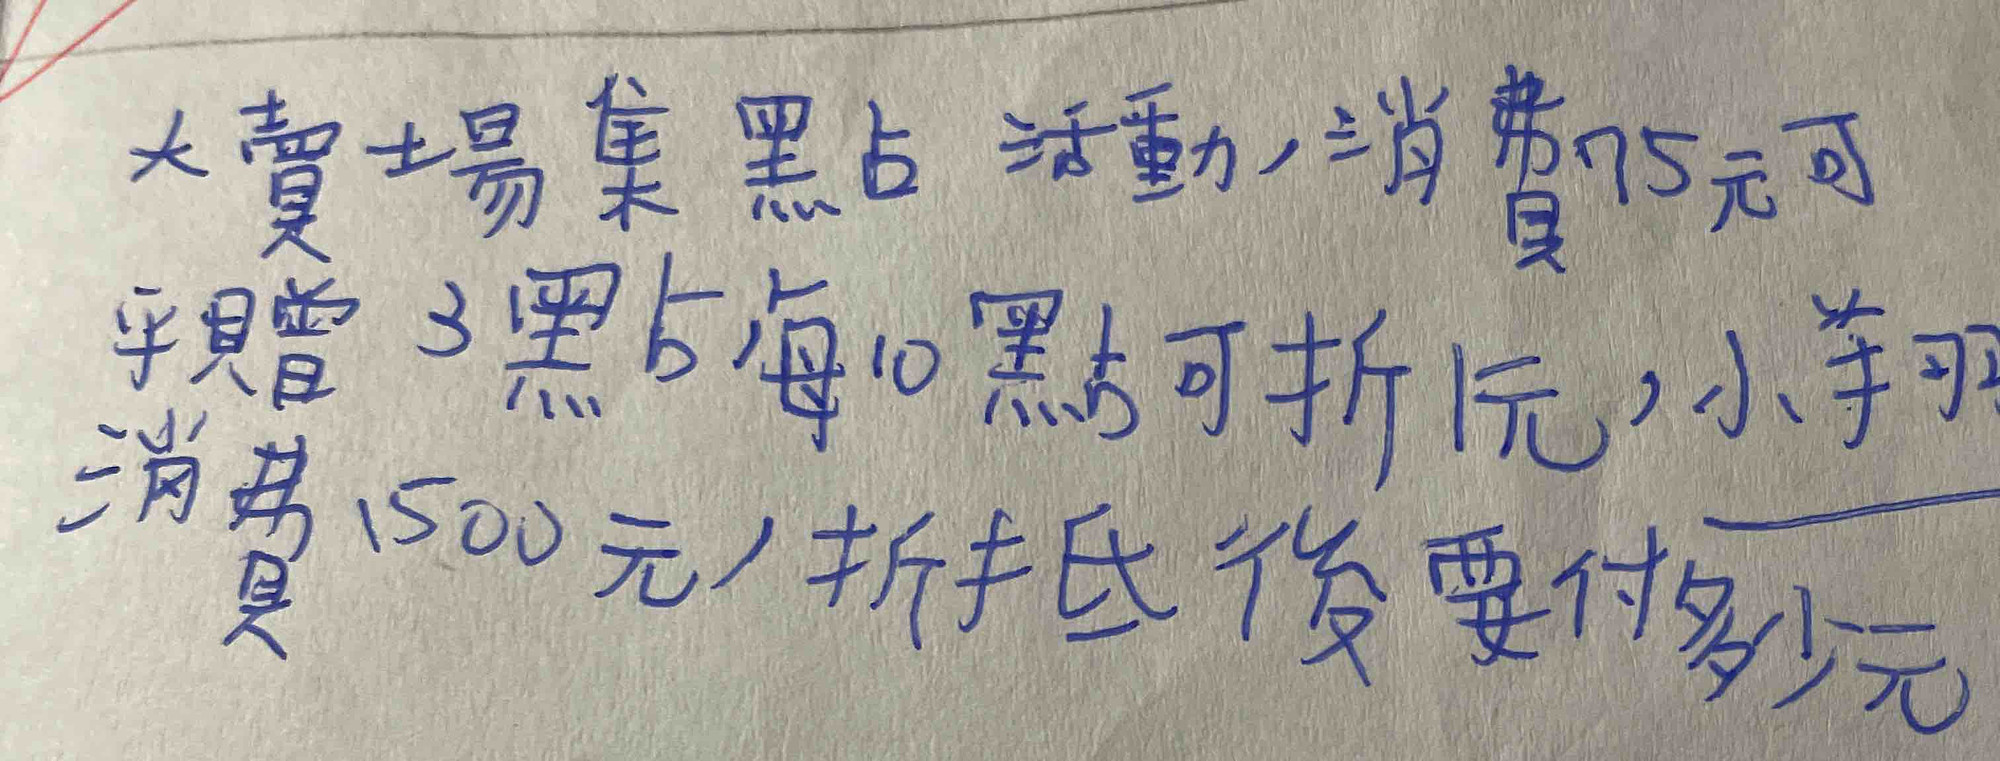 大賣場集點活動,消費75元可
預贈3點,每10點可折1元,小羊
消費1500元,折抵後要付多少元